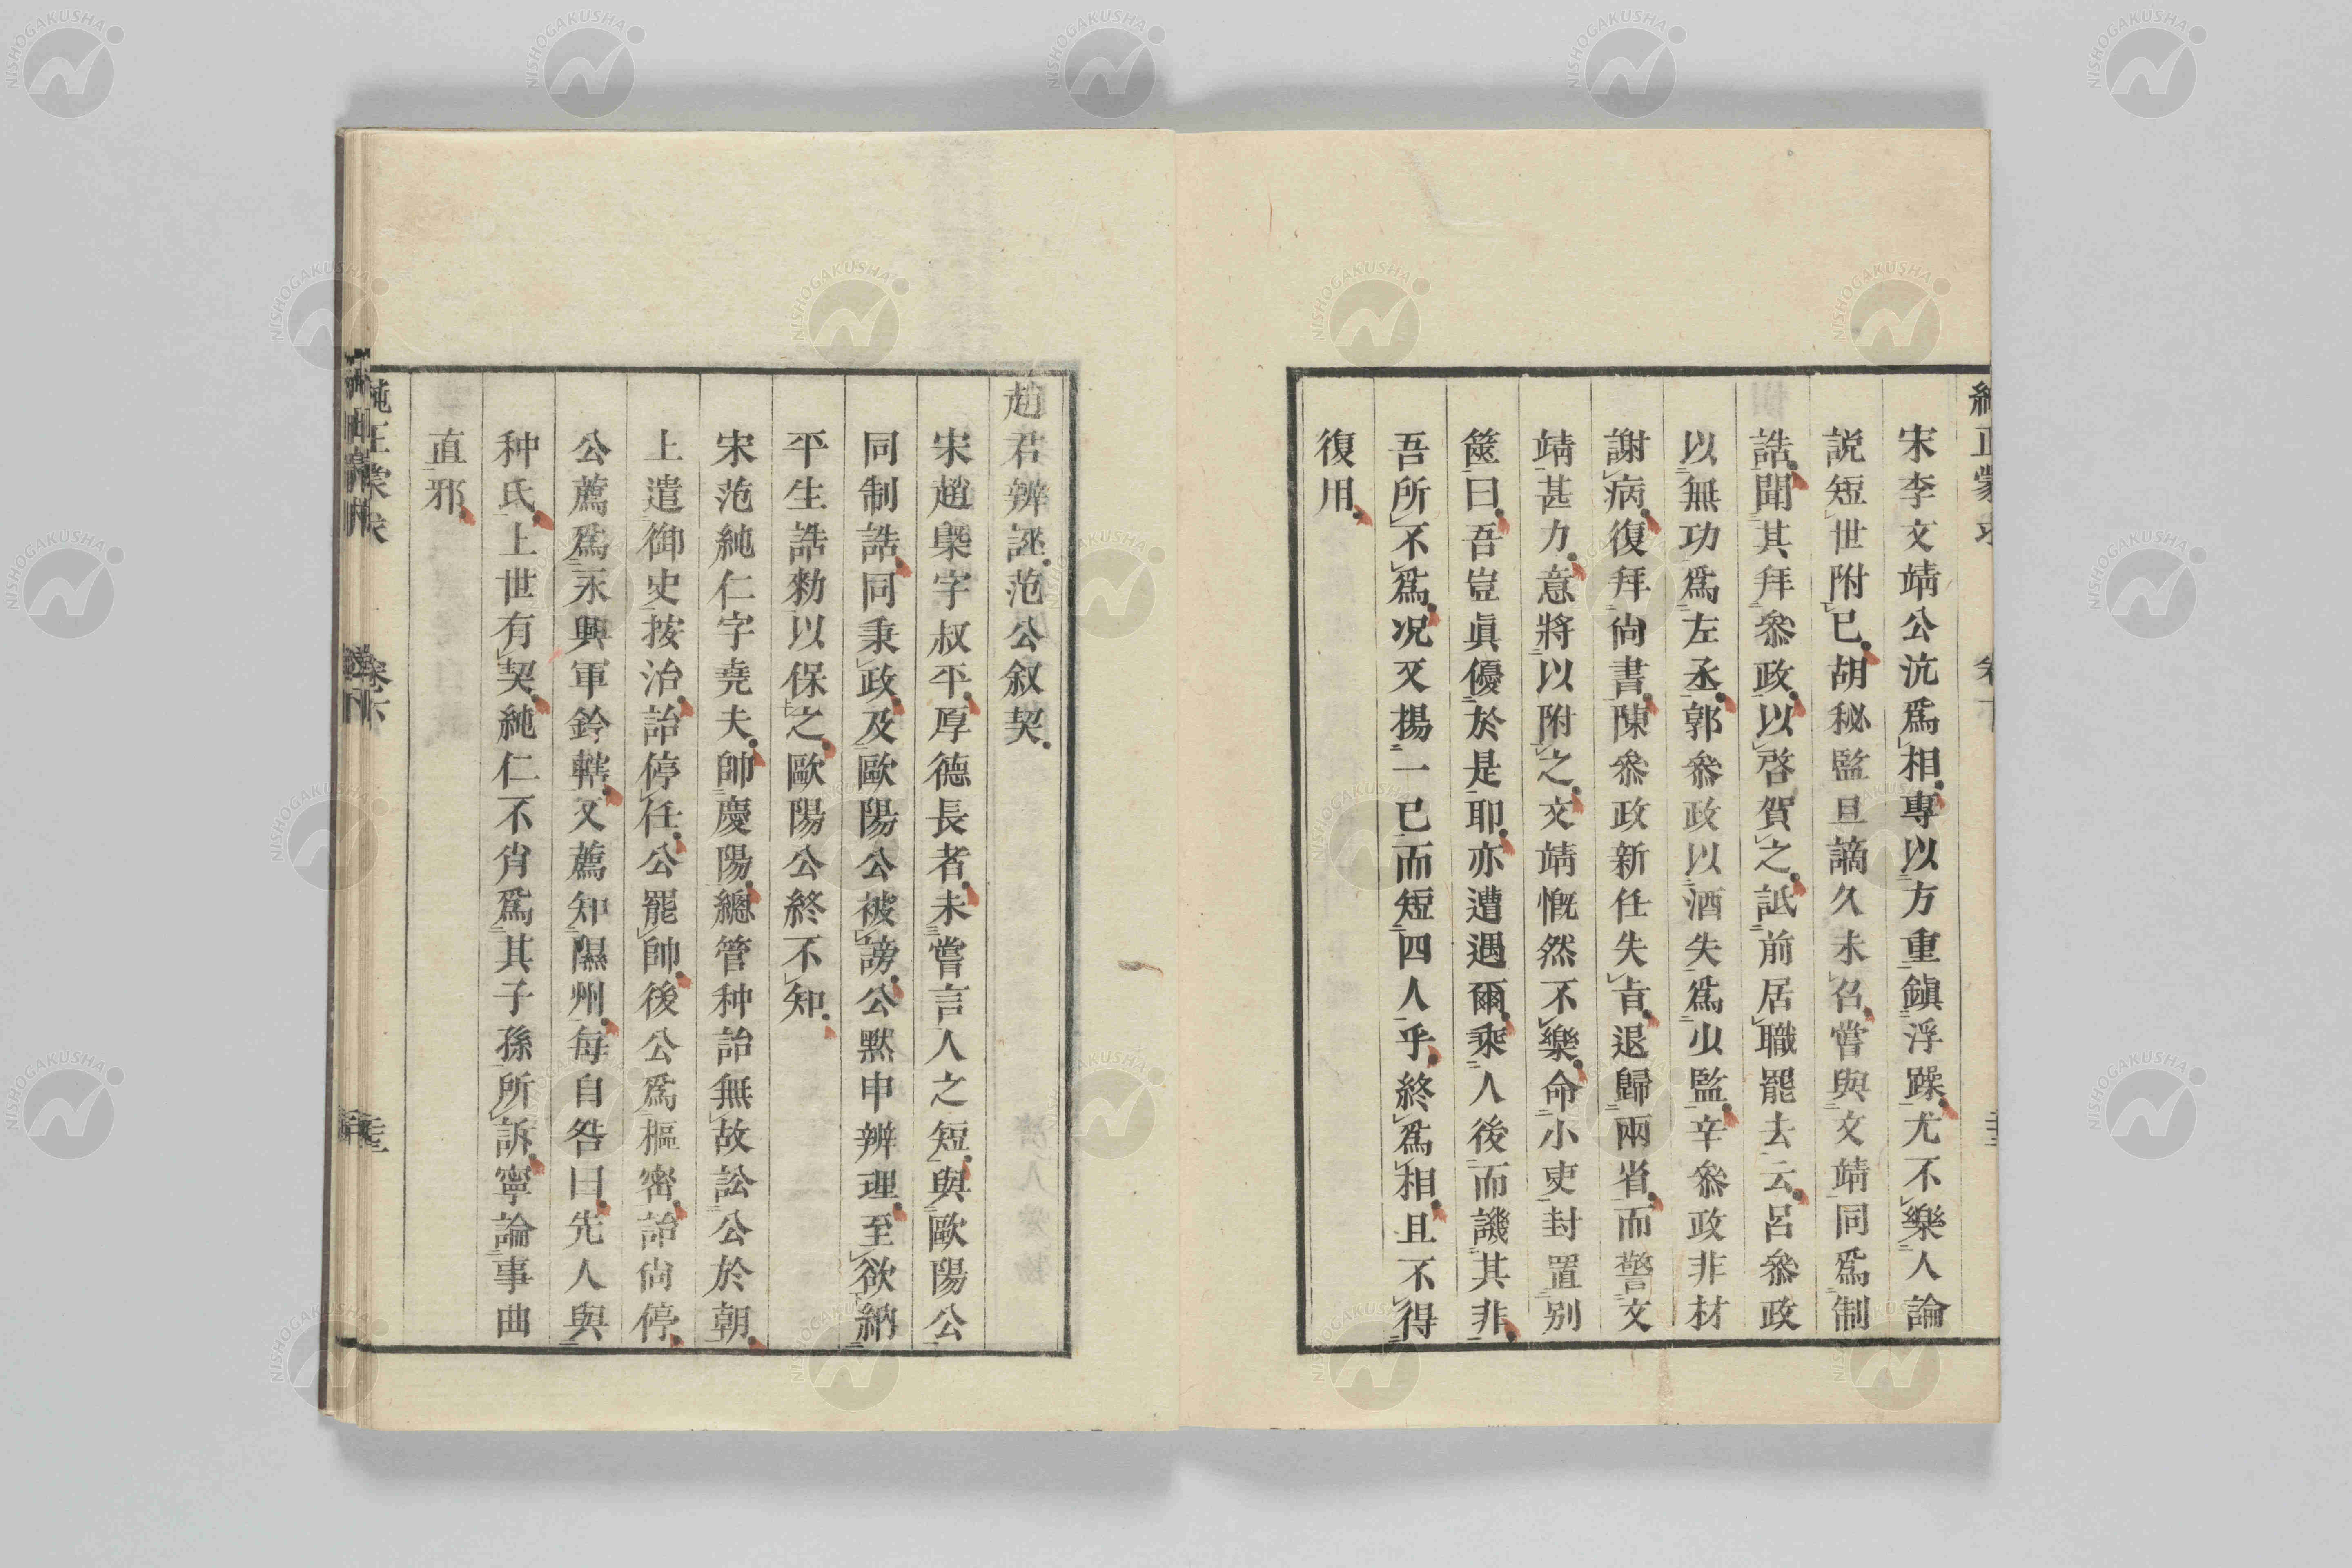 宋李文靖公沆爲相專以方重鎭浮躁尤不樂人論
説短世附已胡秘監旦謫久未召嘗與文靖同爲制
誥聞其拜參政以啓賀之詆前居職罷去云呂參政
以無功爲左丞郭參政以酒失爲少監辛參政非材
謝病復拜尙書陳參政新任失㫖退歸兩省而譽文
靖甚力意將以附之文靖慨然不樂命小吏封置別
篋曰吾豈眞優於是耶亦遭遇爾乘人後而譏其非
吾所不爲况又揚一已而短四人乎終爲相且不得
復用
趙君辨誣范公叙契
宋趙槩字叔平厚德長者未嘗言人之短與歐陽公
同制誥同秉政及歐陽公被謗公默申辨理至欲納
平生誥勅以保之歐陽公終不知
宋范純仁字堯夫帥慶陽總管种詒無故訟公於朝
上遣御史按治詒停任公罷帥後公爲樞密詒尙停
公薦爲永興軍鈐轄又薦知隰州每自咎曰先人與
种氏上世有契純仁不肖爲其子孫所訴寧論事曲
直邪
純正蒙求
卷下
NISHOGAKUSHA